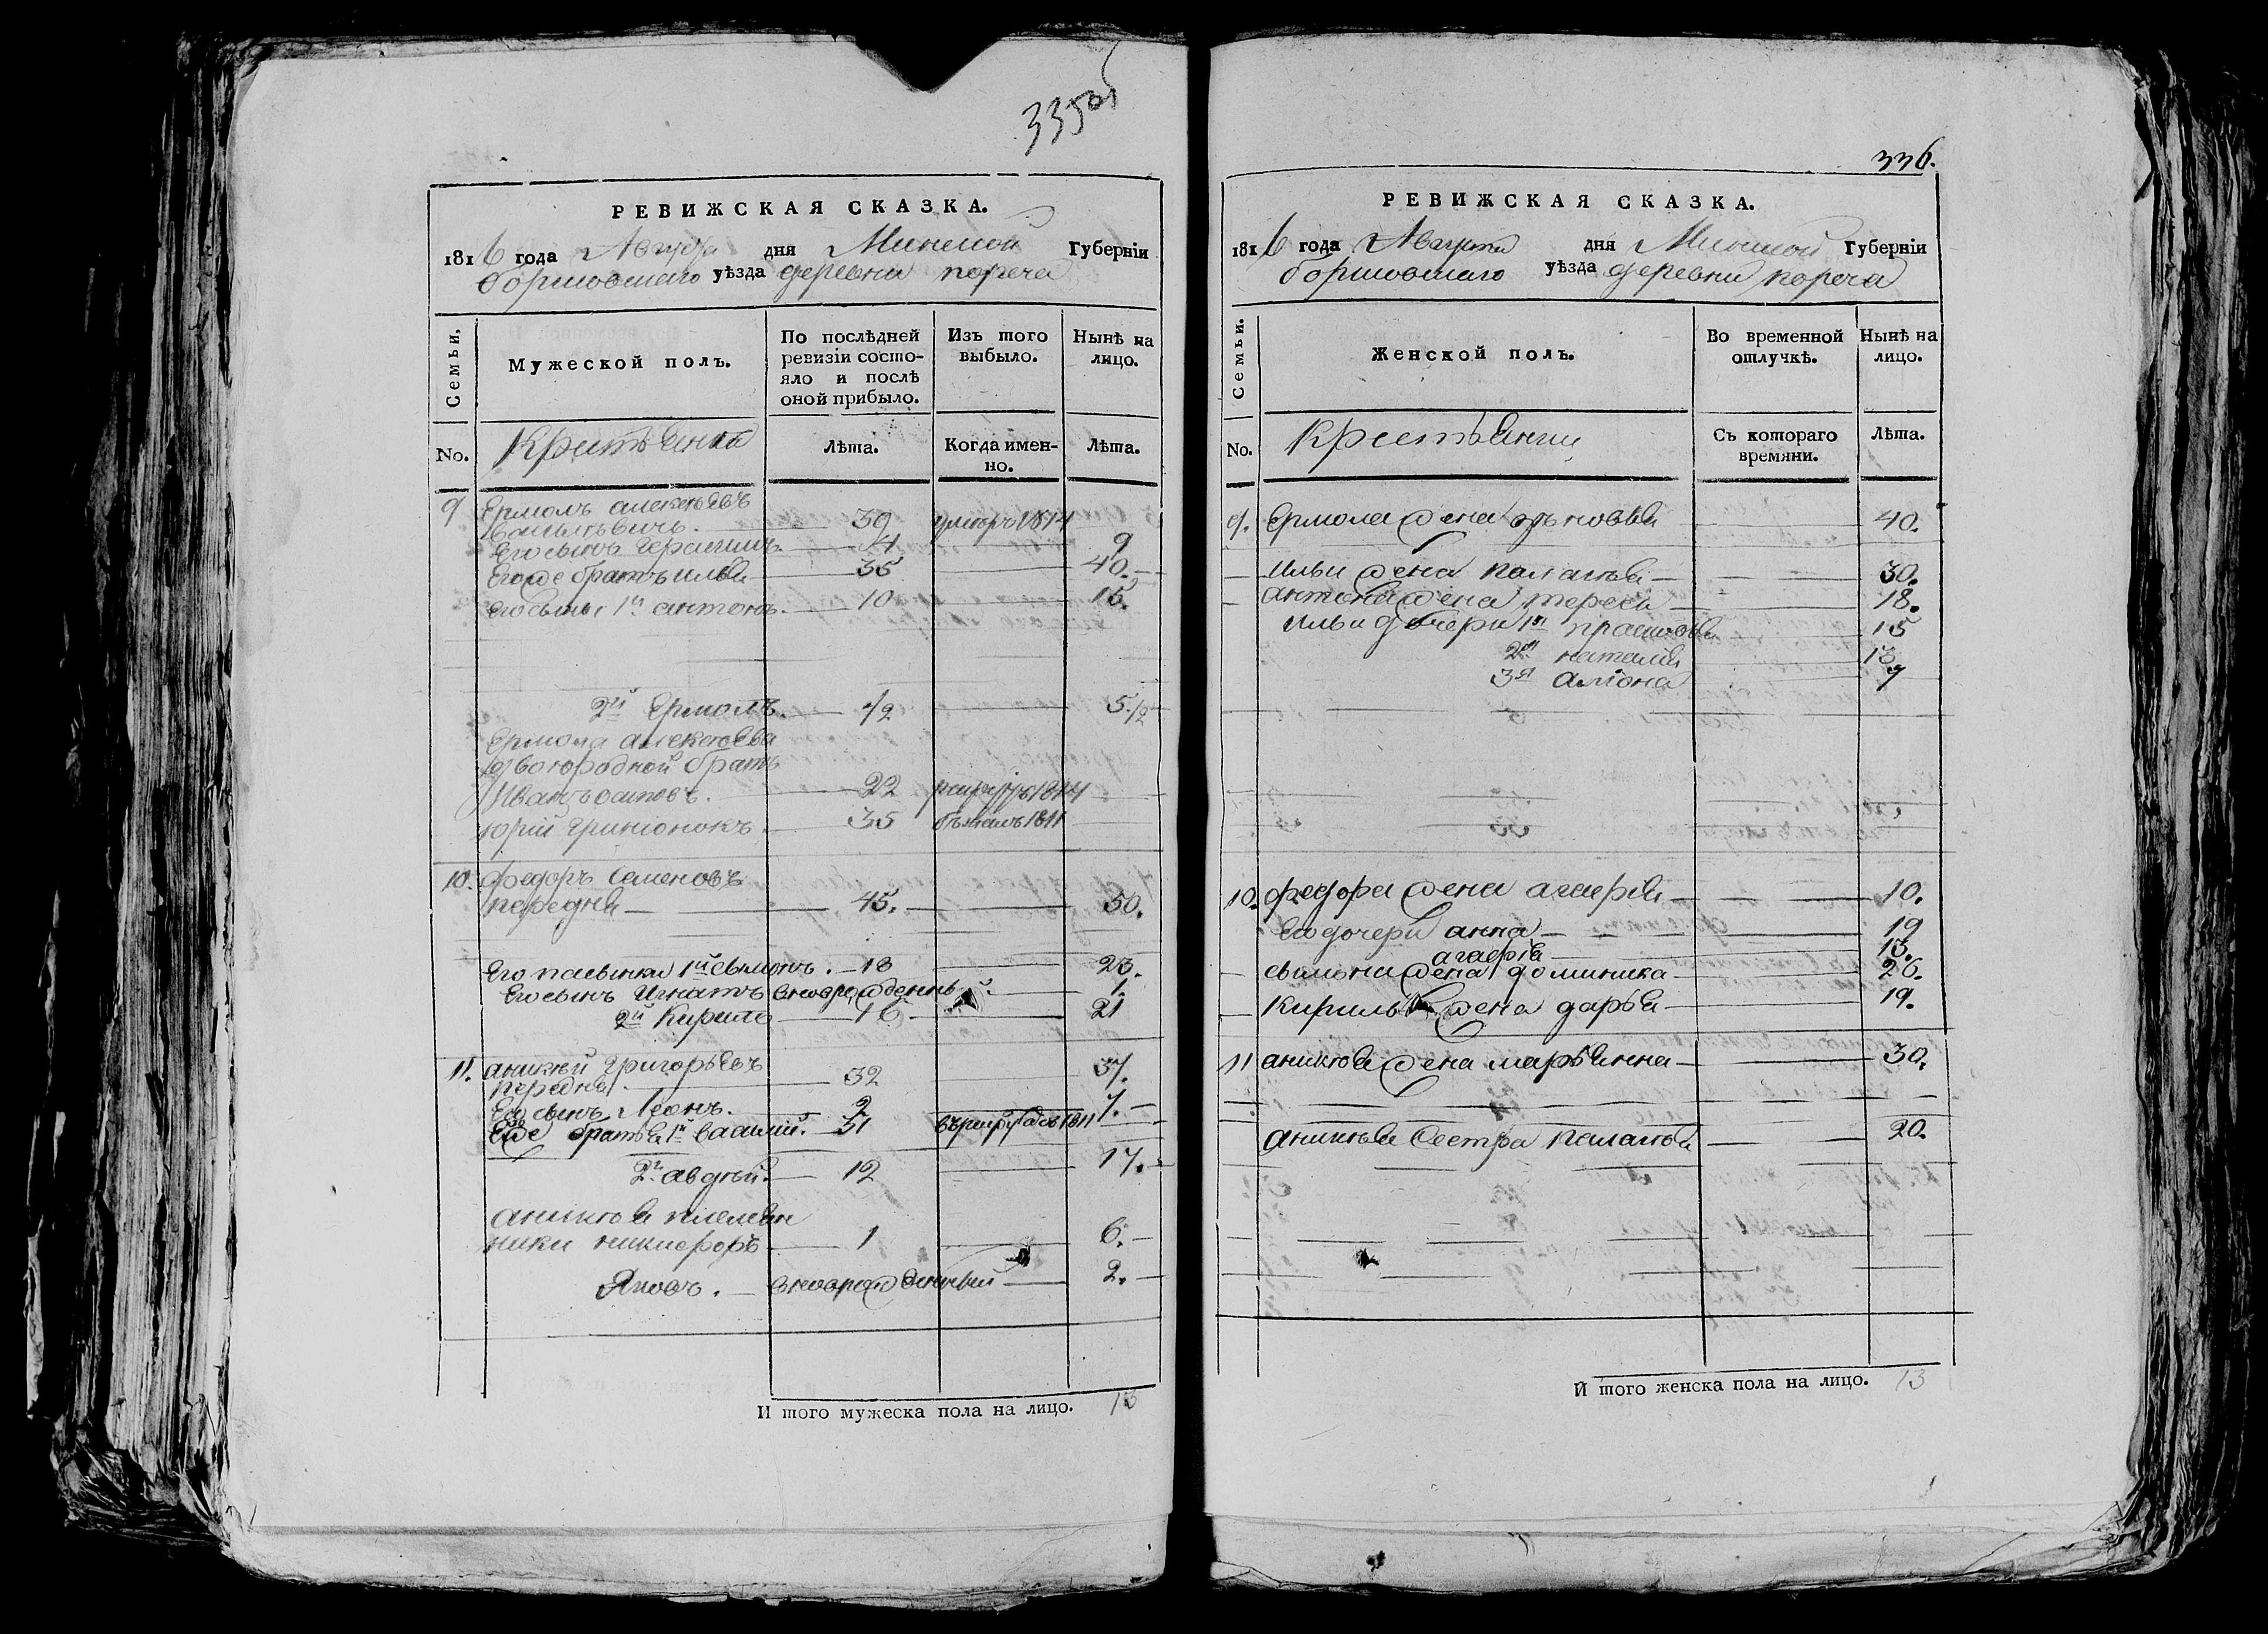 335об
РЕВИЖСКАЯ СКАЗКА.
1816 года Августа дня Минской Губерніи
борисовскаго уѣзда деревни пореча
Семьи.
Мужеской полъ.
По послѣдней ревизіи состо-
яло и послѣ
оной прибыло.
Изъ того
выбыло.
Нынѣ на
лицо.
No.
Лѣта.
Когда имен-
но.
Лѣта.
9 Ермолъ алексѣевъ
39 умеръ 1814
Его сынъ Герасимъ 4 9
Его же братъ илья 35 40.
Его сыны 1й антонъ 10 15.
2й Ермолъ 1/2 5 1/2
Ермола алексѣева
двоюродной братъ
Иванъ осиповъ. 22 1814
юрій 35 бѣжалъ 1811
10. федоръ Семеновъ
передня 45. 50.
Его пасынки 1й сымонъ. 18 23.
Его сынъ Игнатъ вноврожденный 1.
2й Кирило 16 21
11. аникѣй Григорьевъ
передня 32 37.
Его сынъ Леонъ. 2 7.
Его братья 1й василий. 31 въ рекруты 1811
2й авдѣй. 12 17.
аникѣя племян
ники никифоръ 1 6.
Яковъ. вноврожденный 2.
И того мужеска пола на лицо. 13
336.
РЕВИЖСКАЯ СКАЗКА.
1816 года Августа дня Минской Губерніи
борисовскаго уѣзда деревни пореча
Семьи.
Женской полъ.
Во временной
отлучкѣ.
Нынѣ на
лицо.
No.
Съ котораго
времяни.
Лѣта.
9. Ермола жена зѣновья 40.
Ильи жена палагѣя 30.
антона жена тереса 18.
Ильи дочери 1я прасковья 15
2я наталия 13
3я алiона 7
10. федора жена агафия 10.
Его дочери анна 19
агафія 13.
сымона жена доминика 26.
Кирилы жена дарья 19.
11 аникѣя жена марьянна 30.
аникѣя сестра палагѣя 20.
И того женска пола на лицо. 13